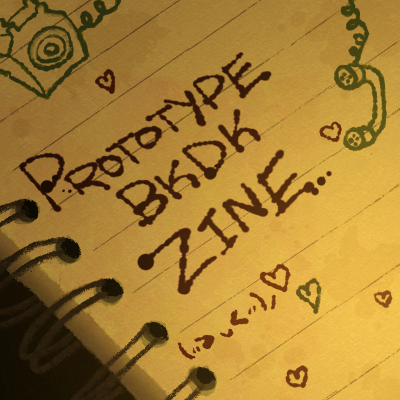 PROTOTYPE
BKDK
ZINE...